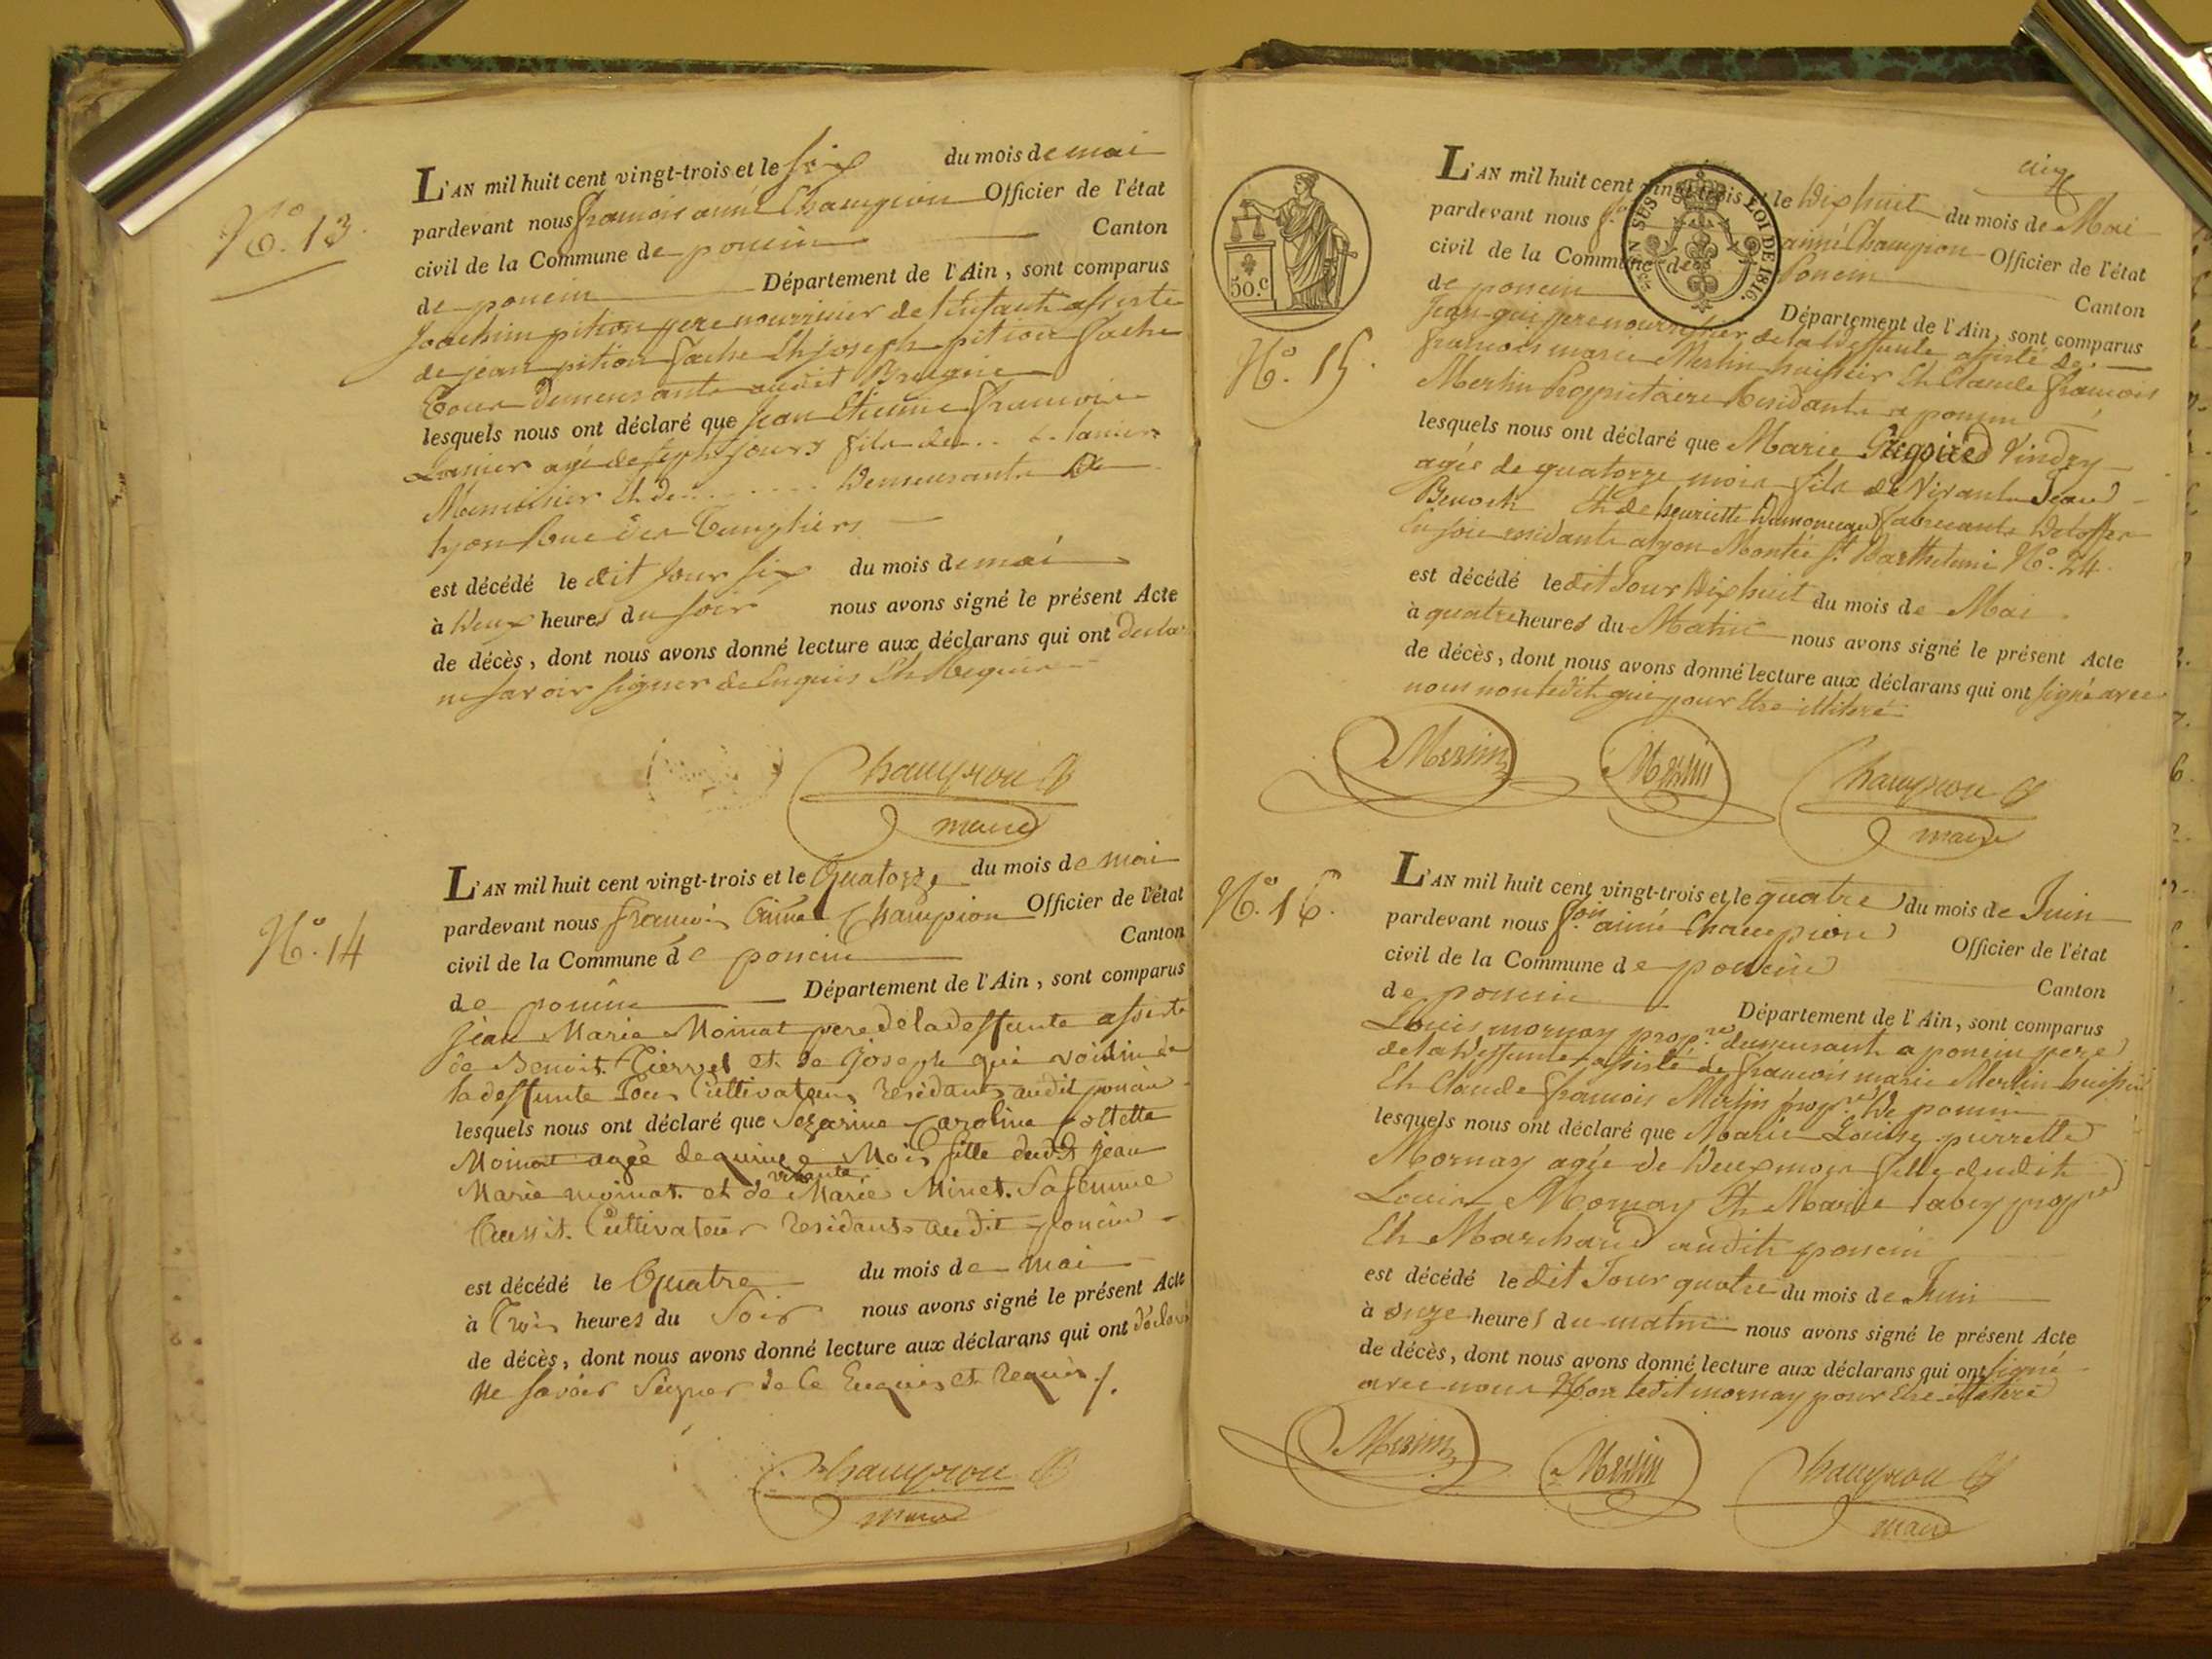 N.º 13.
L'AN mil huit cent vingt-trois et le six du mois de mai
pardevant nous françois aimé Champion Officier de l'état
civil de la Commune de poncin Canton
de poncin Département de l'Ain, sont comparus
Joachim pition pere nourricier de l'enfant assisté
de jean pition Et joseph pition
Tous Demeurants audit
lesquels nous ont déclaré que Jean Etienne françois
Lanier agé de sept jours fils de . . .
Menuisier Et de . . . . . . . Demeurants
Lyon Rue des
est décédé le dit jour six du mois de mai
à Deux heures du soir nous avons signé le présent Acte
de décès, dont nous avons donné lecture aux déclarans qui ont
ne savoir signer de Enquis Et Requis
Champion
maire
N.º 14
L'AN mil huit cent vingt-trois et le Quatorze du mois de mai
pardevant nous françois Aimé Champion Officier de l'état
civil de la Commune de poncin Canton
de poncin Département de l'Ain, sont comparus
jean Marie Moinat pere de la deffunte assisté
de Benoit et de joseph gui voisin de
la deffunte Tous Cultivateurs residants audit poncin
lesquels nous ont déclaré que Sezarine Caroline
Moinat agée de quinze Mois fille dudit jean
vivante
Marie moinat. et de Marie Minet. Sa femme
Aussit. Cultivateur residants audit poncin
est décédé le Quatre du mois de mai
à Trois heures du Soir nous avons signé le présent Acte
de décès, dont nous avons donné lecture aux déclarans qui ont déclaré
Ne savoir Signer de Ce Enquis et Requis ./.
Champion
maire
cinq
50.C
LOI DE 1816.
N.º 15.
L'AN mil huit cent vingt-trois et le Dix huit du mois de Mai
pardevant nous aimé Champion Officier de l'état
civil de la Commune de Poncin Canton
de poncin Département de l'Ain, sont comparus
Jean gui pere nourricier de la Deffunte assisté de
françois marie Merlin huissier Et Claude françois
Merlin Proprietaire Residants a poncin
lesquels nous ont déclaré que Marie Vindry
agés de quatorze mois fils de Vivant Jean
Benoit Et de henriette fabricants
En soie residants a lyon Montée St. Barthelemi N.º 24.
est décédé le dit Jour Dix huit du mois de Mai
à quatre heures du Matin nous avons signé le présent Acte
de décès, dont nous avons donné lecture aux déclarans qui ont signé avec
nous non ledit gui pour Etre illiteré
Merlin Merlin Champion
maire
N.º 16.
L'AN mil huit cent vingt-trois et le quatre du mois de Juin
pardevant nous f.ois aimé Champion Officier de l'état
civil de la Commune de poncin Canton
de poncin Département de l'Ain, sont comparus
Louis mornay prop.re demeurant a poncin pere
de la Deffunte assisté de francois marie Merlin huissier
Et Claude francois Merlin prop.re De poncin
lesquels nous ont déclaré que Marie Louise pierrette
Mornay agée de Deux mois fille dudit
Louis Mornay Et Marie
Et Marchand audit poncin
est décédé le dit Jour quatre du mois de Juin
à onze heures du matin nous avons signé le présent Acte
de décès, dont nous avons donné lecture aux déclarans qui ont signé
avec nous Non ledit mornay pour Etre illiteré
Merlin Merlin Champion
maire